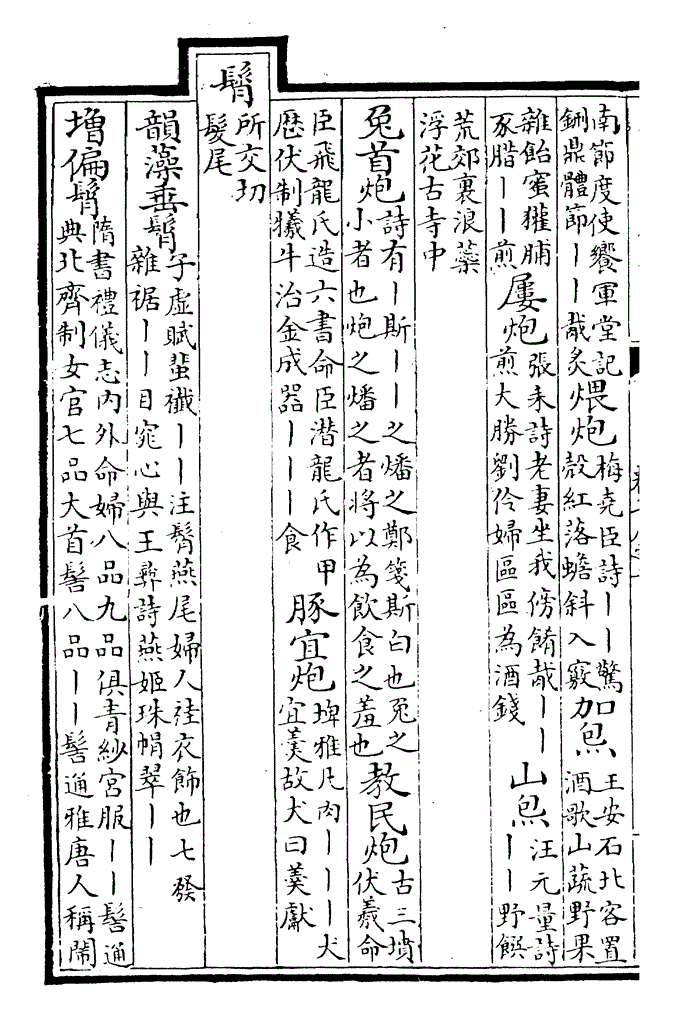 南節度使饗軍堂記
鉶鼎體節丨丨胾炙
煨炮
梅堯臣詩丨丨驚
殼紅落蟾斜入竅
加炰
王安石北客置
酒歌山蔬野果
雜飴蜜獾脯
豕腊丨丨煎
屢炮
張耒詩老妻坐我傍餚胾丨丨
煎大勝劉伶婦區區為酒錢
山炰
汪元量詩
丨丨野饌
荒郊裹浪蘂
浮花古寺中
兔首炮
詩有丨斯丨丨之燔之鄭箋斯白也兔之
小者也炮之燔之者將以為飲食之羞也
教民炮
古三墳
伏羲命
臣飛龍氏造六書命臣潛龍氏作甲
歷伏制犧牛治金成器丨丨丨食
豚宜炮
埤雅凡肉丨丨丨犬
宜羹故犬曰羹獻
髾
所交切
髮尾
韻藻垂髾
子虛賦蜚襳丨丨注髾燕尾婦人袿衣飾也七發
雜裾丨丨目窕心與王彝詩燕姬珠帽翠丨丨
增偏髾
隋書禮儀志內外命婦八品九品俱青紗宮服丨丨髻通
典北齊制女官七品大首髻八品丨丨髻通雅唐人稱鬧